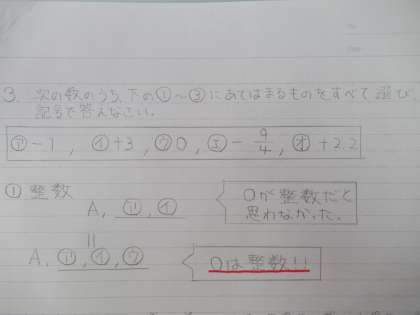 3. 次の数のうち、下の①〜③にあてはまるものをすべて選び、
記号で答えなさい。
㋐-7, ㋑+3, ㋒0, ㋓-9/4, ㋔+2.2
① 整数
A. ㋐, ㋑
0が整数だと
思わなかった。
=
A. ㋐, ㋑, ㋒
0は整数!!